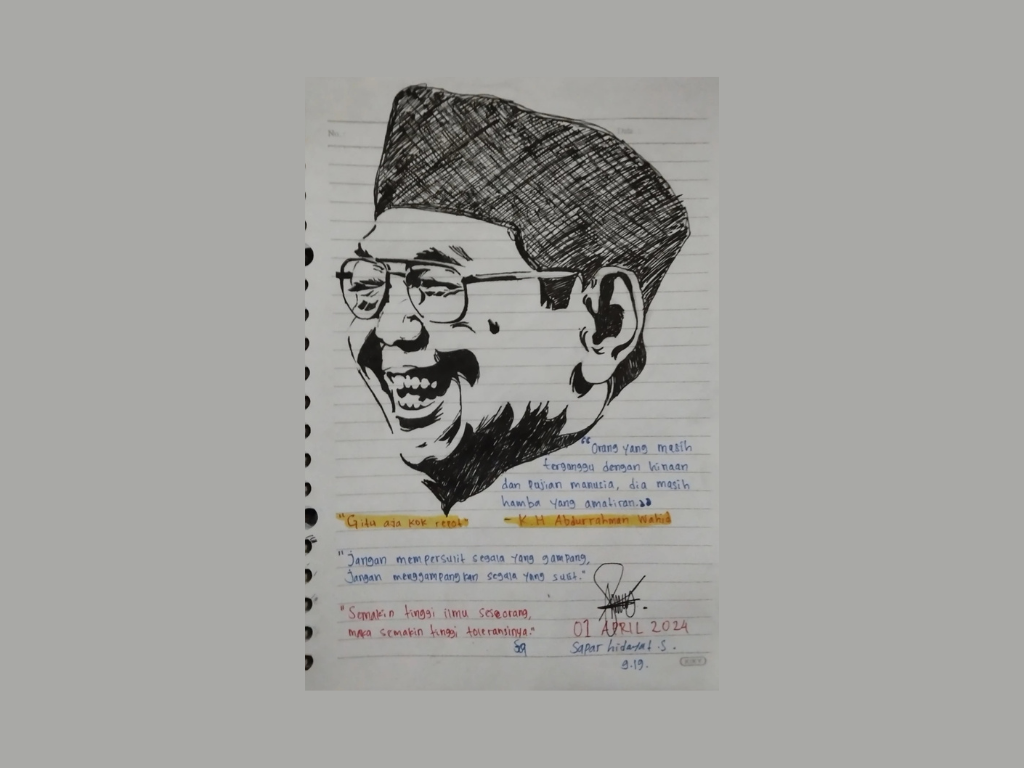 No.
“Orang yang masih
terganggu dengan hinaan
dan Pujian manusia, dia masih
hamba yang amatiran.”
"Gitu ada kok repot"
- K H Abdurrahman Wahid
"Jangan mempersulit segala yang gampang,
Jangan menggampangkan segala yang sust."
"Semakin tinggi ilmu seseorang,
maka semakin tinggi toleransinya."
01 APRIL 2024
Sapar hidayat .S.
9.19.